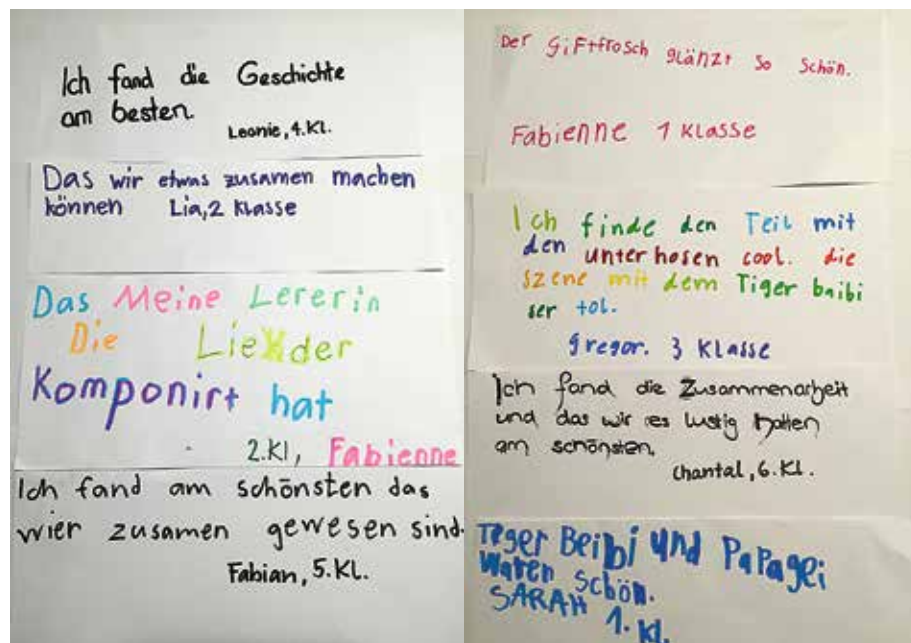 Ich fand die Geschichte
am besten.
Leonie, 4.Kl.
Das wir etwas zusamen machen
können Lia, 2 Klasse
Das Meine Lererin
Die Lieder
Komponirt hat
2.Kl, Fabienne
Ich fand am schönsten das
wier zusamen gewesen sind.
Fabian, 5.Kl.
Der Giftfrosch glänzt so schön.
Fabienne 1 Klasse
Ich finde den Teil mit
den unterhosen cool. die
szene mit dem Tiger baibi
ser tol.
gregor. 3 Klasse
Ich fand die Zusammenarbeit
und das wir es lustig hatten
am schönsten.
Chantal, 6.Kl.
Teger Beibi und Papagei
Waren schön.
SARAH 1. Kl.